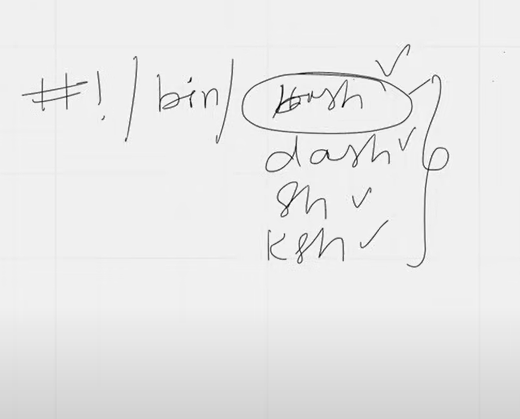 #!/bin/bash
dash
sh
ksh